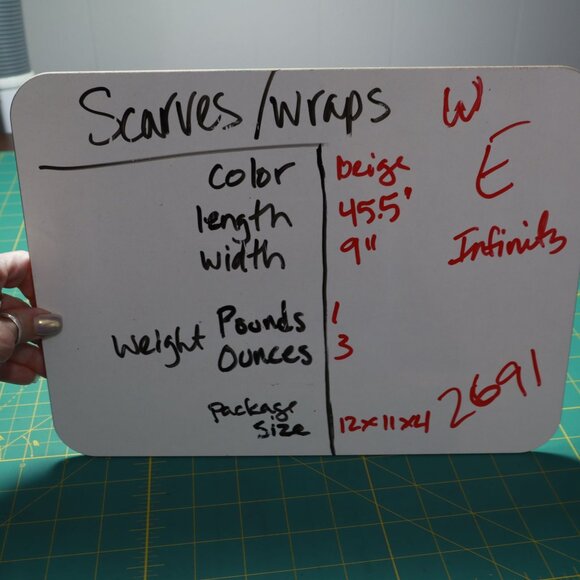 Scarves/wraps W
color beige E
length 45.5"
width 9" Infinity
Weight Pounds 1
Ounces 3
package
size 12x11x4 2691